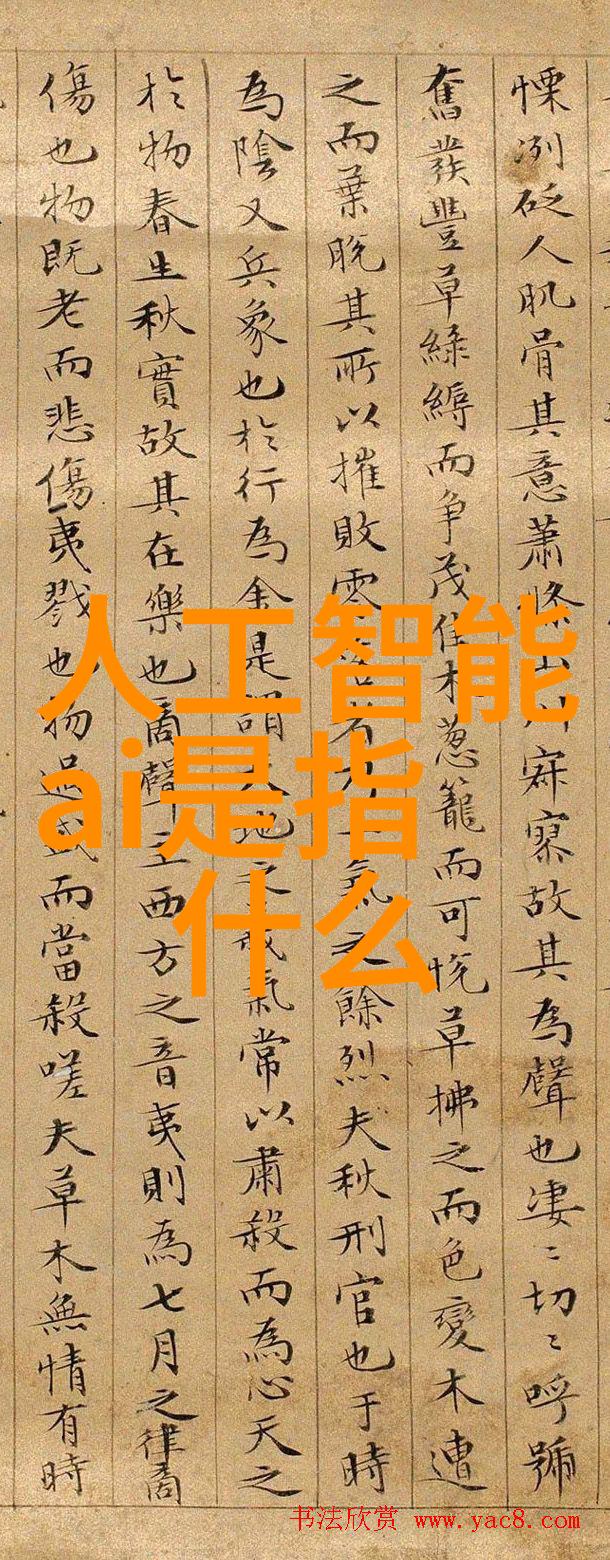 慄冽砭人肌骨其意蕭條山川寂寥故其為聲也淒〻切〻呼號
奮發豐草綠縟而争茂佳木葱籠而可悅草拂之而色變木遭
之而葉脫其所以摧敗零落者乃一氣之餘烈夫秋刑官也于時
為陰又兵象也於行為金是謂天地之義氣常以肅殺而為心天之
於物春生秋實故其在樂也商聲主西方之音夷則為七月之律商
傷也物既老而悲傷夷戮也物過盛而當殺嗟夫草木無情有時
人工智能
ai是指
什么
书法欣赏 www.yac8.com